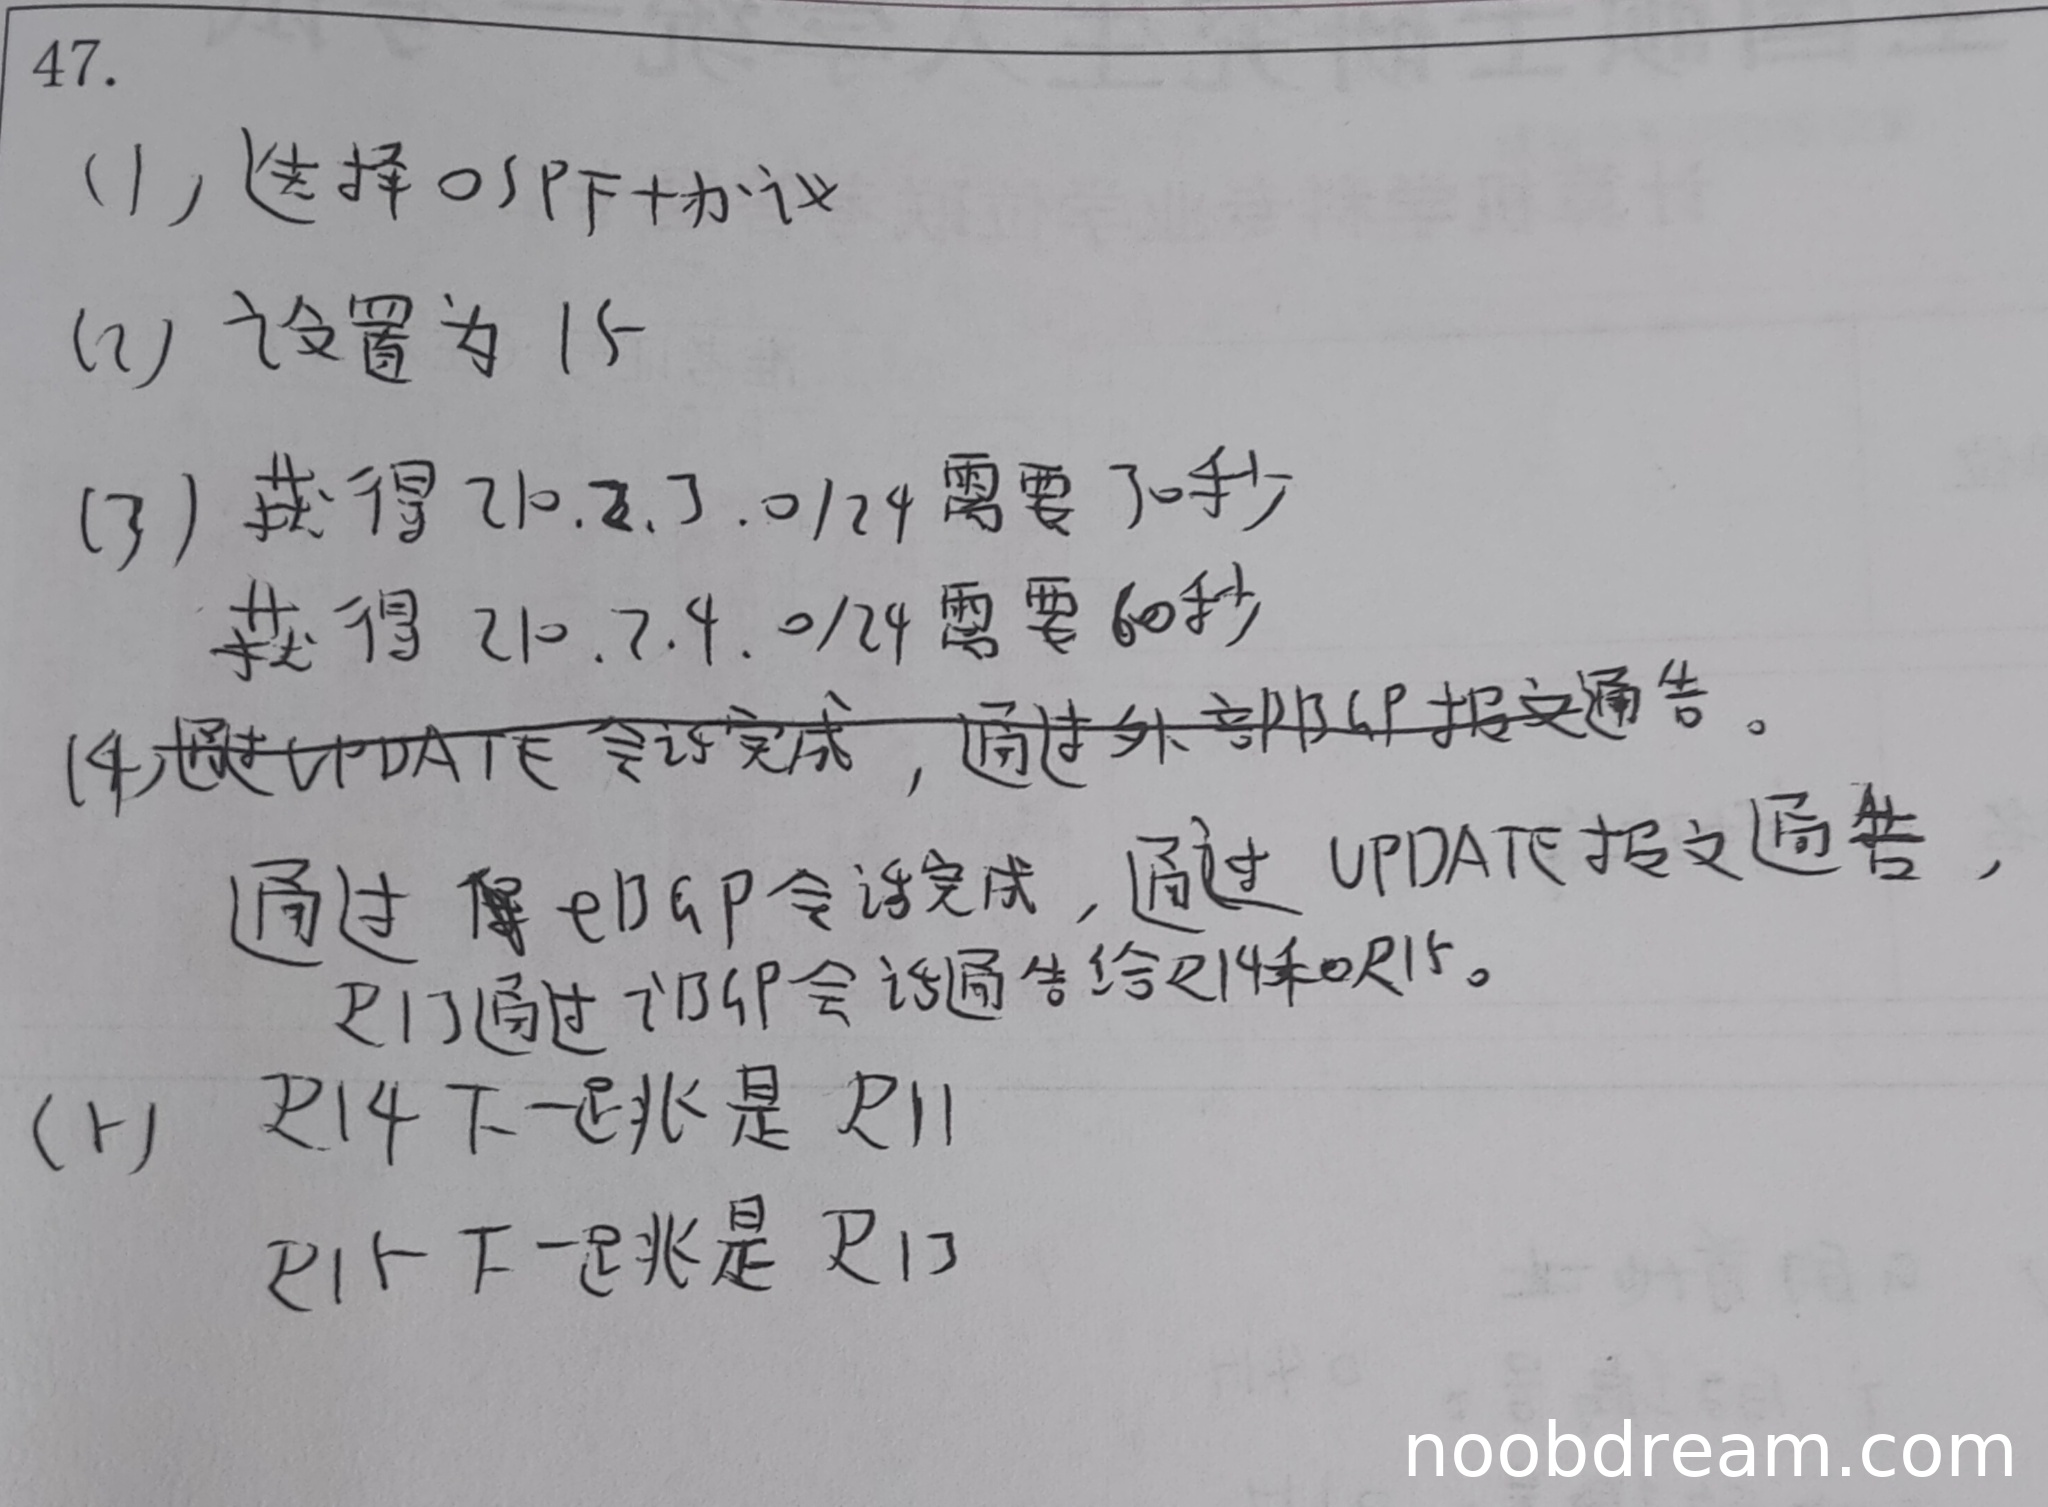 47.
(1) 选择OSPF协议
(2) 设置为 15
(3) 获得 210.2.3.0/24 需要30秒
获得 210.2.4.0/24 需要60秒
(4) 通过UPDATE会话完成，通过外部BGP报文通告。
通过 eBGP会话完成，通过 UPDATE报文通告，
R13通过iBGP会话通告给R14和R15。
(5) R14 下一跳是 R11
R15 下一跳是 R13
noobdream.com